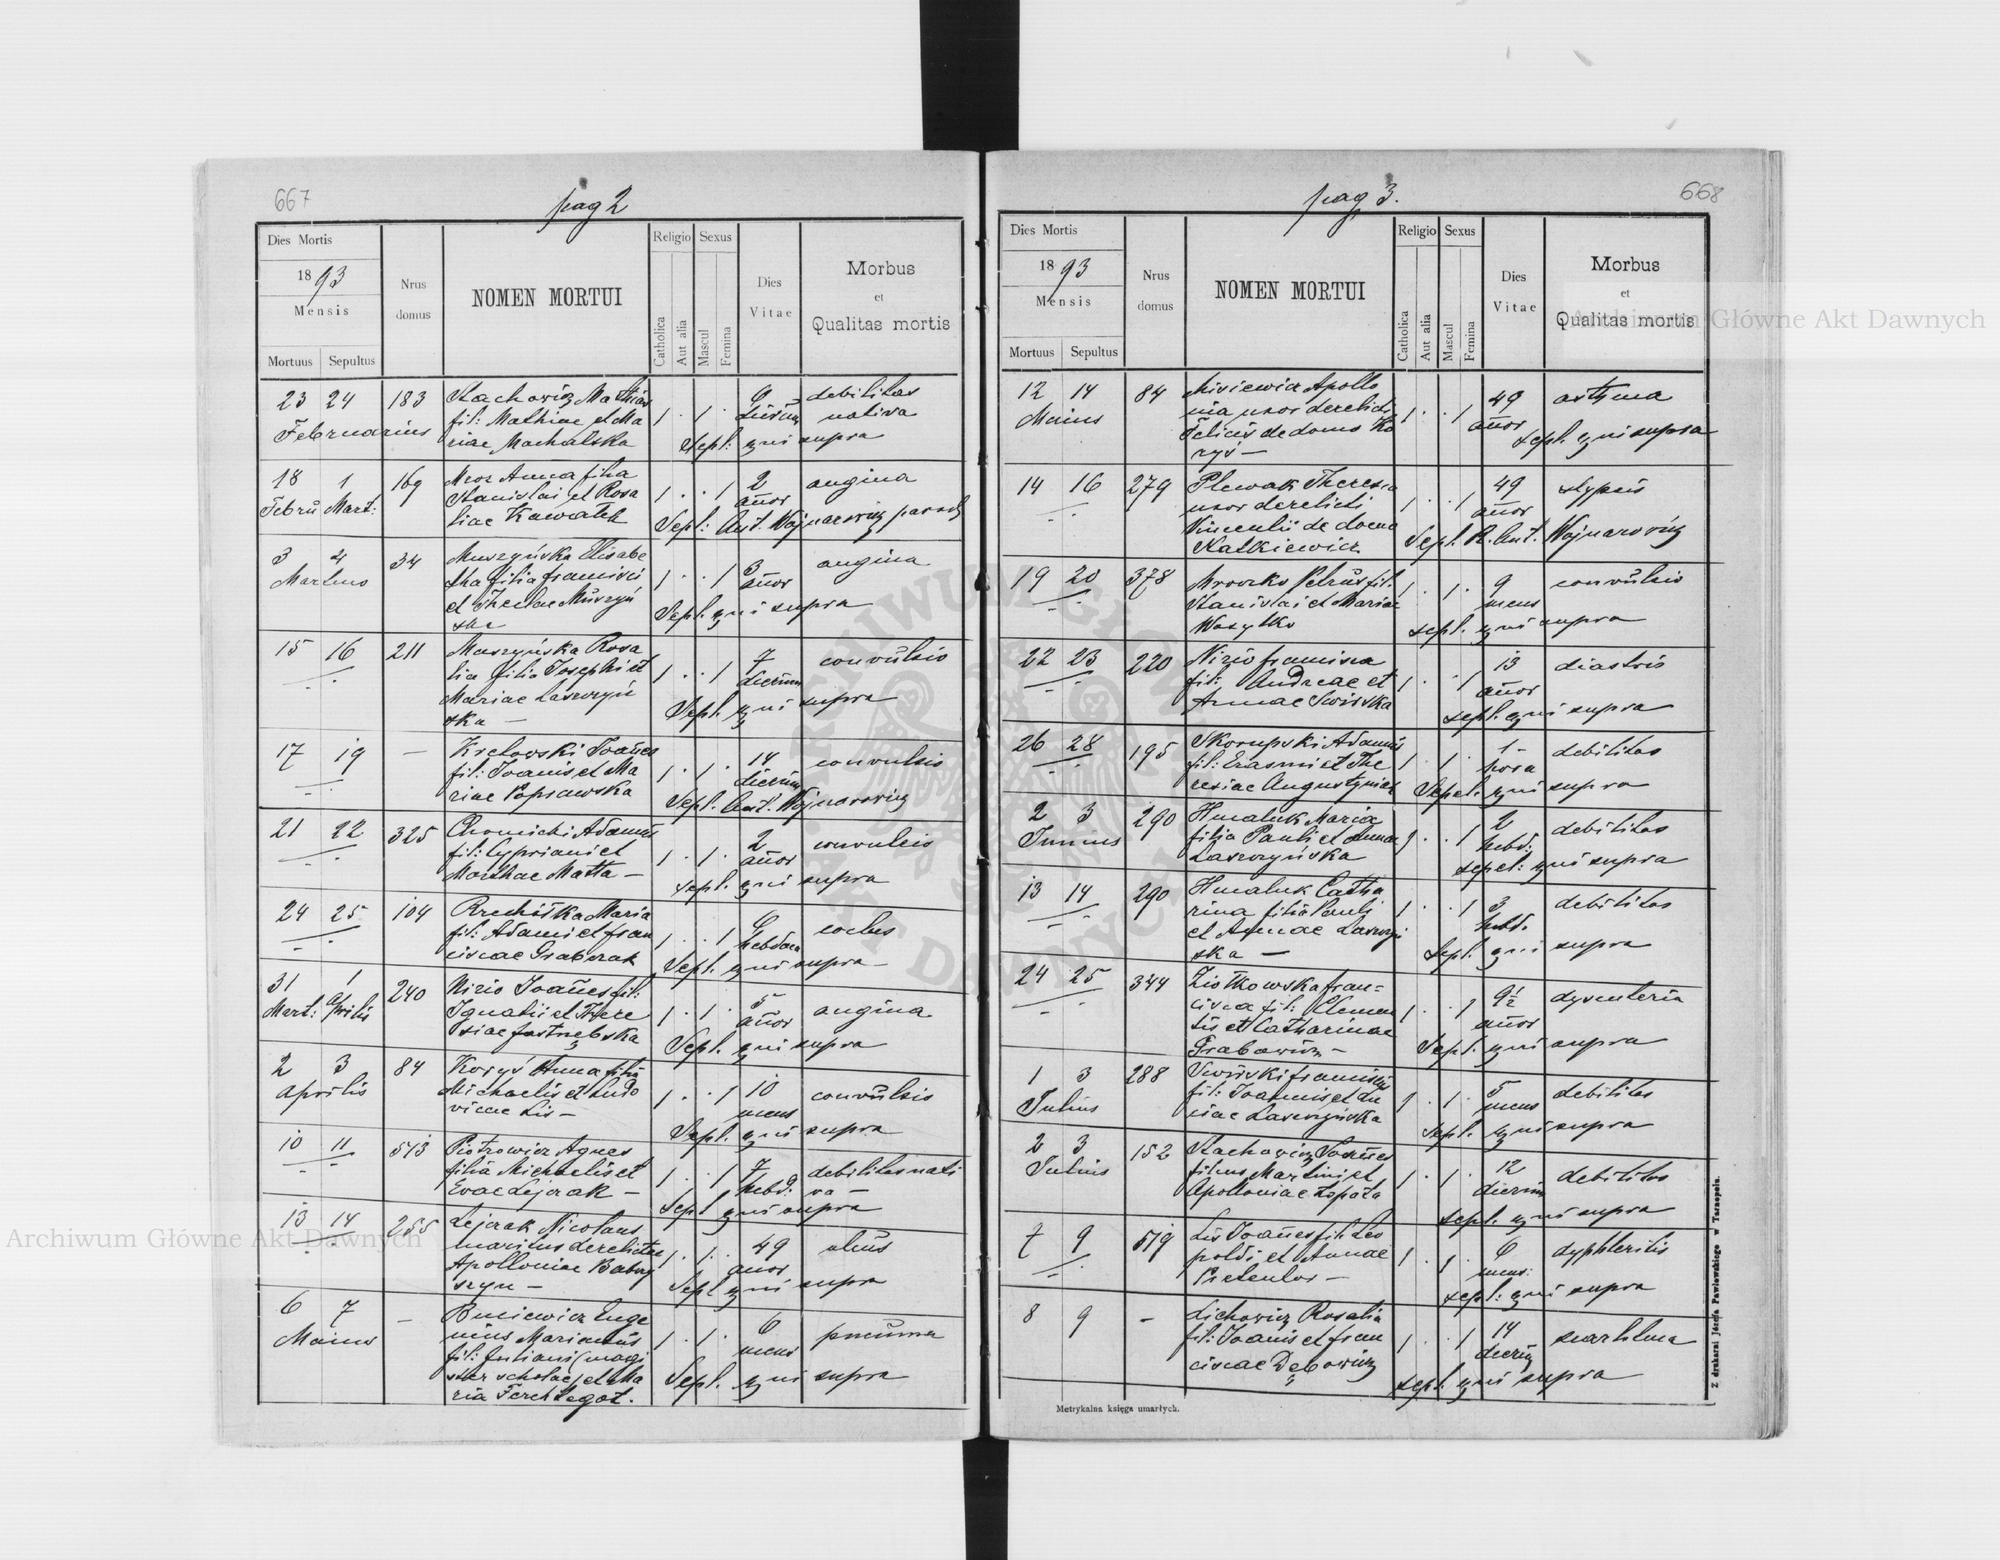 667
pag 2
Dies Mortis
1893
Mensis
Mortuus Sepultus
Nrus domus
NOMEN MORTUI
Religio
Catholica
Aut alia
Sexus
Mascul
Femina
Dies Vitae
Morbus
et
Qualitas mortis
23 24 183 Stachowicz Mathias debilitas
fil: Mathiae et Ma 1 . 1 . dierum nativa
Februarius riae Machalska Sepl: qui supra
18 1 169 Mroz Anna filia 2 angina
Stanislai et Rosa 1 . . 1 años
Febrũ Mart: liae Kawałek Sepl: Ant. Wojnarowicz paroch
3 4 34 Muszyńska Elisabe 3 angina
Martius tha filia francisci 1 . . 1 años
et Theclae Muszyń Sepl. qui supra
ska
15 16 211 Muszyńska Rosa 7 convulsio
lia filia Josephi et 1 . . 1 dierum
Mariae Laszczyń Sepl. qui supra
ska –
17 19 — Kretowski Joañes 14 convulsio
fil: Joanis et Ma 1 . 1 . dierum
riae Poprawska Sepl. Ant. Wojnarowicz
21 22 325 Chomicki Adamus 2 convulsio
fil: Cypriani et 1 . 1 . años
Marthae Matta – sepl. qui supra
24 25 104 Maria
fil: Adami et fran 1 . . 1 hebdom
ciscae Grabczak Sepl. qui supra –
31 1 240 Nizio Joañes fil: 5 angina
Mart: Aprilis Ignatii et There 1 . 1 . años
siae Jastrzębska Sepl. qui supra
2 3 84 Koryś Anna filia 10 convulsio
Aprilis Michaelis et Ludo 1 . . 1 mens
vicae Lis – Sepl. qui supra
10 11 513 Piotrowicz Agnes 7 debilitas nati
filia Michaelis et 1 . . 1 hebd: va –
Evae Lejczak – Sepl qui supra
13 14 255 Lejczak Nicolaus 49 ulcus
maritus derelictae 1 . 1 . años
Apolloniae Babry Sepl qui supra
szyn –
6 7 – Eugé 6
Maius nius Marianus 1 . 1 . mens
fil: Juliani (magi Sepl. qui supra
ster scholae) et Ma
ria
pag 3.
668
Dies Mortis
1893
Mensis
Mortuus Sepultus
Nrus domus
NOMEN MORTUI
Religio
Catholica
Aut alia
Sexus
Mascul
Femina
Dies Vitae
Morbus
et
Qualitas mortis
12 14 84 Misiewicz Apollo 49 asthma
Maius nia uxor derelicti 1 . . 1 años
Felicis de domo Ko sepl. qui supra
ryś –
14 16 279 Plewak Theresia 49
uxor derelicti 1 . . 1 años
Vincentii de domo Sepl. R. Ant. Wojnarowicz
Katkiewicz
19 20 378 Mroczko Petrus fil. 9 convulsio
Stanislai et Mariae 1 . 1 . mens
Wasylko sepl. qui supra
22 23 220 Nizio francisca 13
fil: Andreae et 1 . . 1 años
Annae Swirska sepl. qui supra
26 28 195 Skorupski Adamus 1 debilitas
fil: Erasmi et The 1 . 1 . hora
resiae Augustyniak Sepel. qui supra
2 3 290 Hmaluk Maria 2 debilitas
Junius filia Pauli et Annae 1 . . 1 hebd:
Laszczyńska sepel: qui supra
13 14 290 Hmaluk Catha 3 debilitas
rina filia Pauli 1 . . 1 hebd.
et Annae Laszczyń Sepl. qui supra
ska –
24 25 344 Ziołkowska fran= 9½ dysenteria
cisca fil: Clemen 1 . . 1 años
tis et Catharinae Sepl. qui supra
Grabowicz –
1 3 288 Swirski franciscus 5 debilitas
Julius fil: Joannis et Lu 1 . 1 . mens
ciae Laszczyńska sepl. qui supra
2 3 152 Stachowicz Joañes 12 debilitas
Julius filius Martini et 1 . 1 . dierum
Apolloniae Łopata sepl. qui supra
7 9 519 Lis Joañes fil: Leo 6 dyphteritis
poldi et Annae 1 . 1 . mens:
sepl: qui supra
8 9 – Lichowicz Rosalia 14
fil: Joanis et fran 1 . . 1 dierum
ciscae Dębowicz sepl. qui supra
Metrykalna księga umarłych.
Z drukarni Józefa Pawłowskiego w Tarnopolu.
Archiwum Główne Akt Dawnych
Archiwum Główne Akt Dawnych
ARCHIWUM GŁÓWNE AKT DAWNYCH